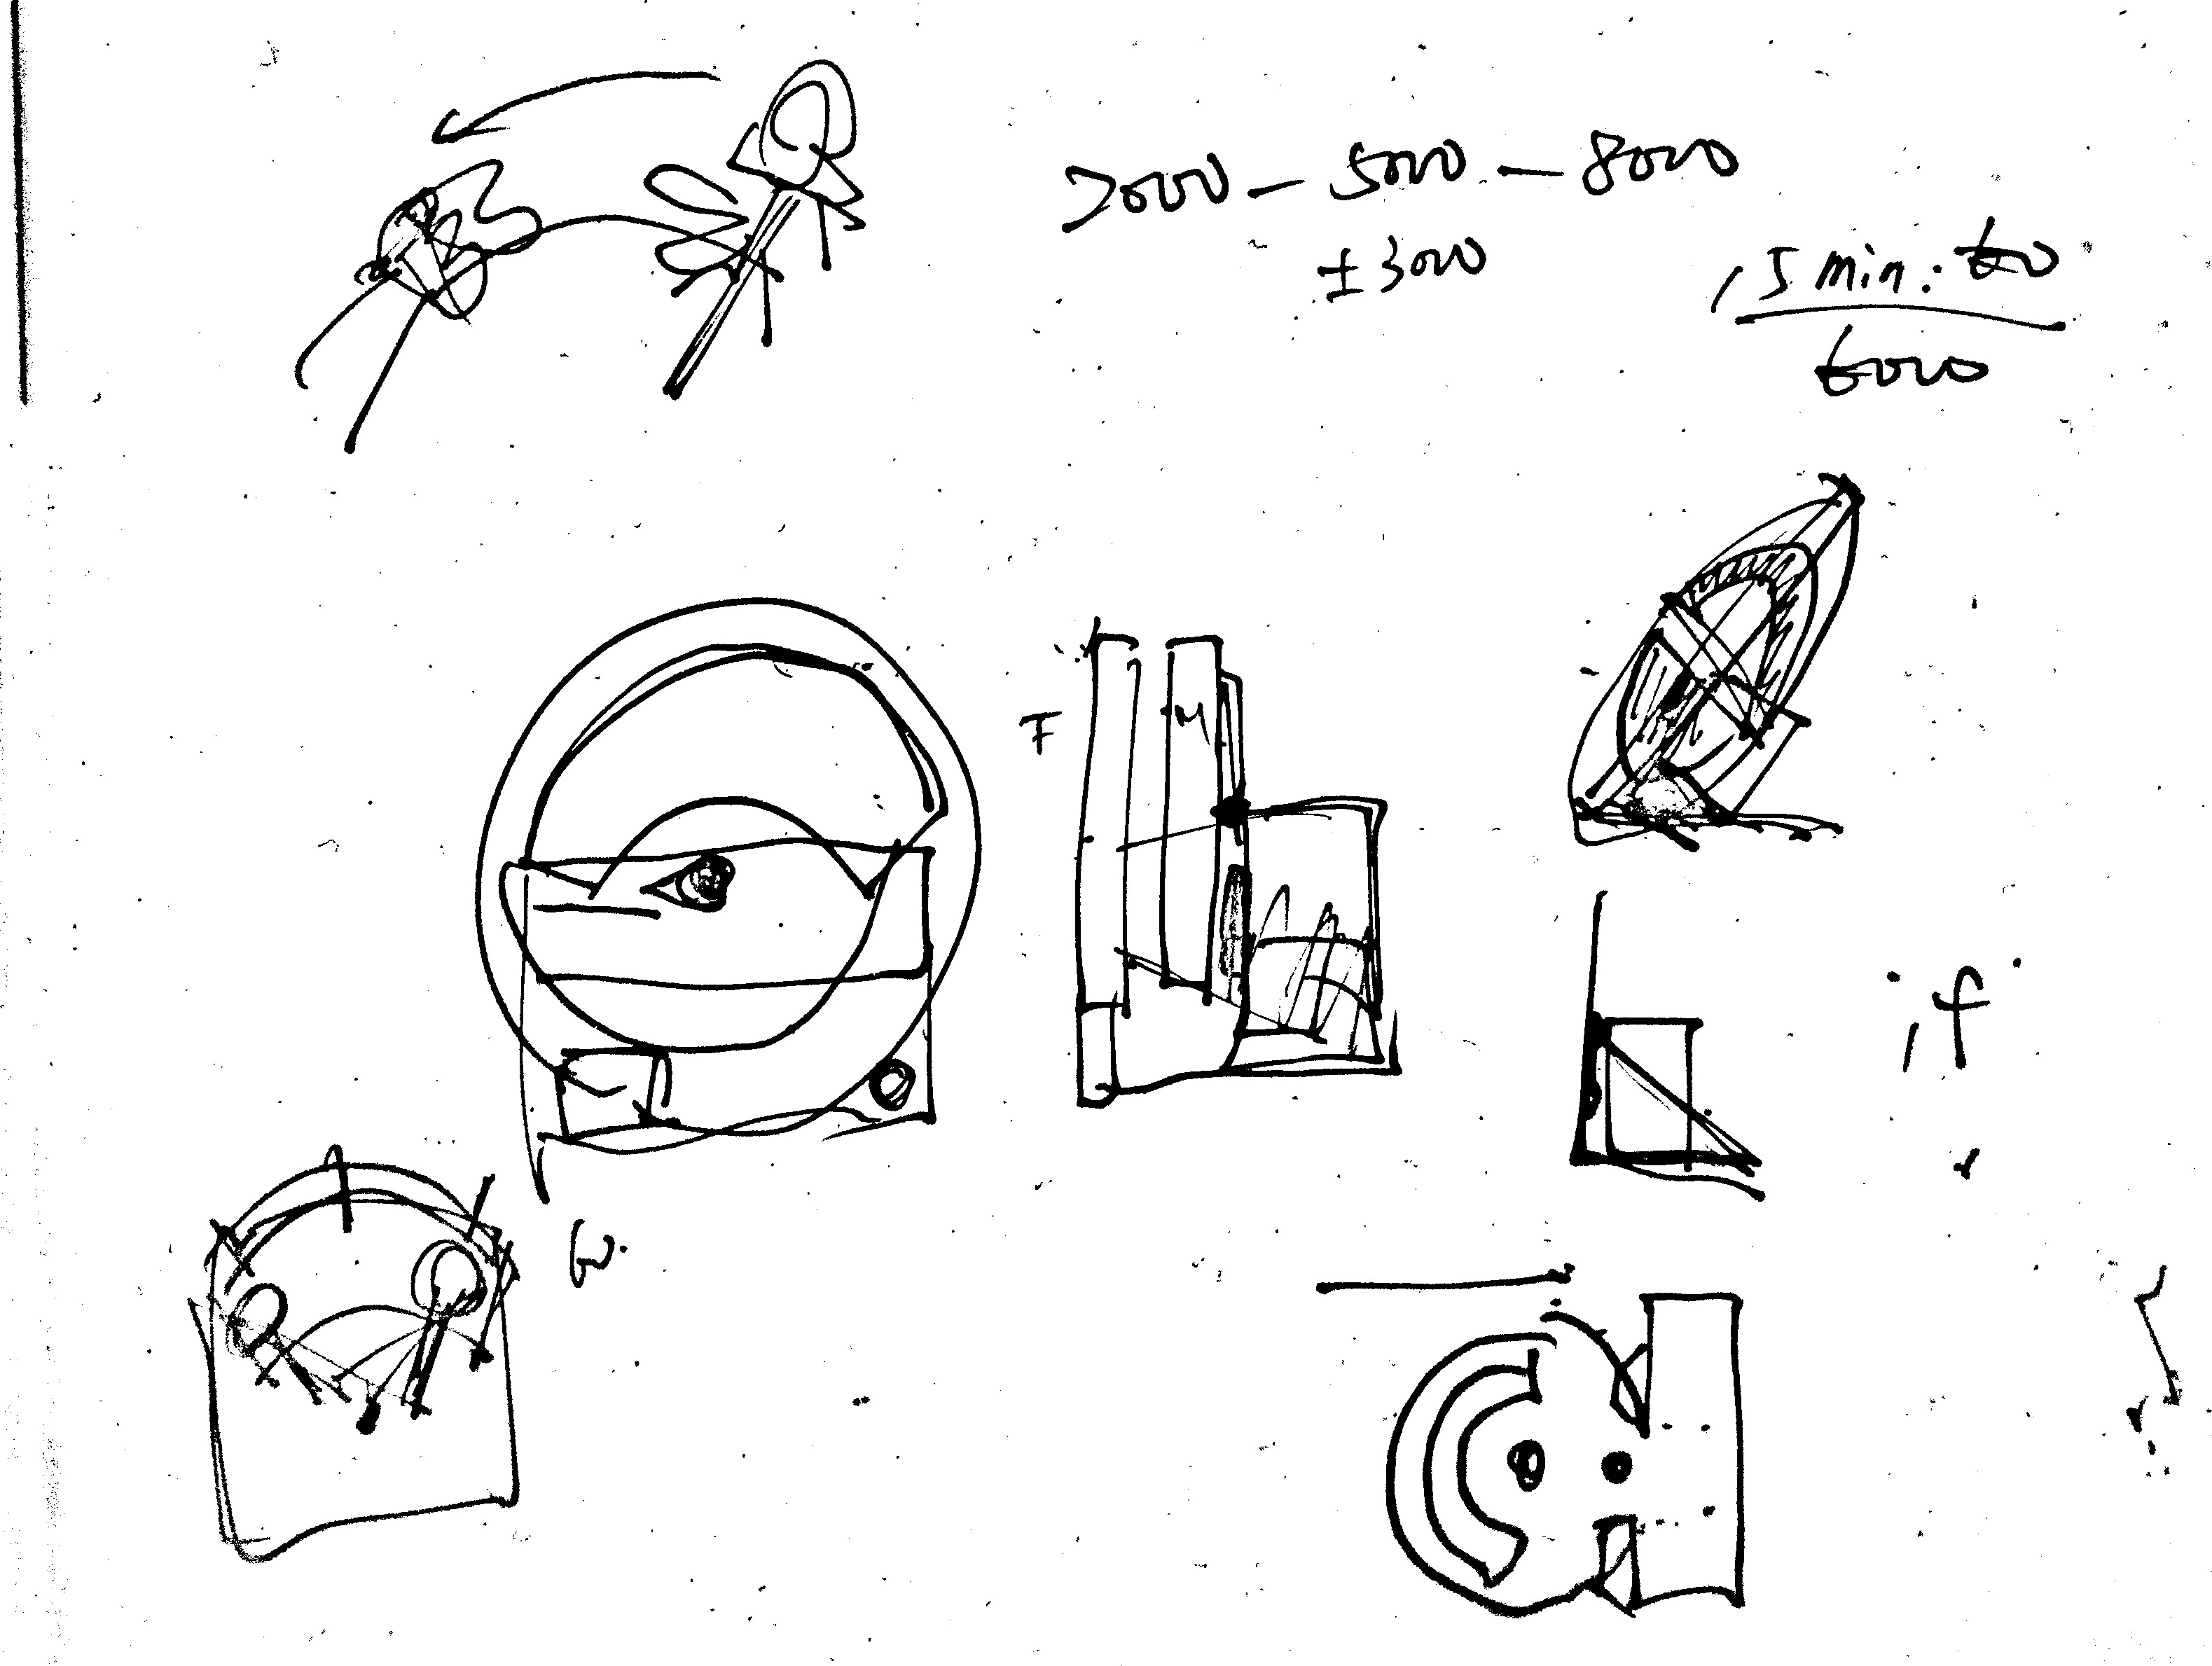 2000 – 5000 – 8000
± 3000
15 min : 60
6000
F
M
if